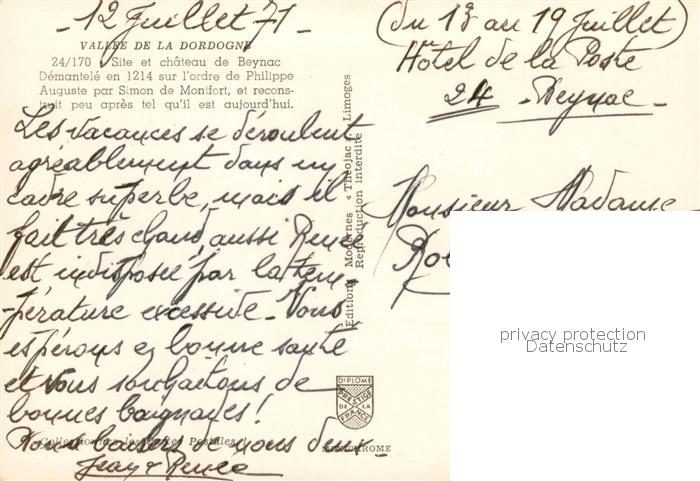 12 Juillet 71 -
VALLÉE DE LA DORDOGNE
24/170 - Site et château de Beynac
Démantelé en 1214 sur l'ordre de Philippe
Auguste par Simon de Montfort, et recons-
truit peu après tel qu'il est aujourd'hui.
Les vacances se déroulent
agréablement dans un
cadre superbe, mais il
fait très chaud, aussi Renée
est indisposée par la tem
-pérature excessive - Nous
espérons en bonne santé
et vous souhaitons de
bonnes baignades!
baisers de nous deux -
Jean & Renée
Editions Modernes « Théojac », Limoges
Reproduction interdite
(du 13 au 19 Juillet)
Hôtel de la Poste
24 - Beynac -
Monsieur Madame
DIPLOME
PRESTIGE
DE LA
FRANCE
privacy protection
Datenschutz